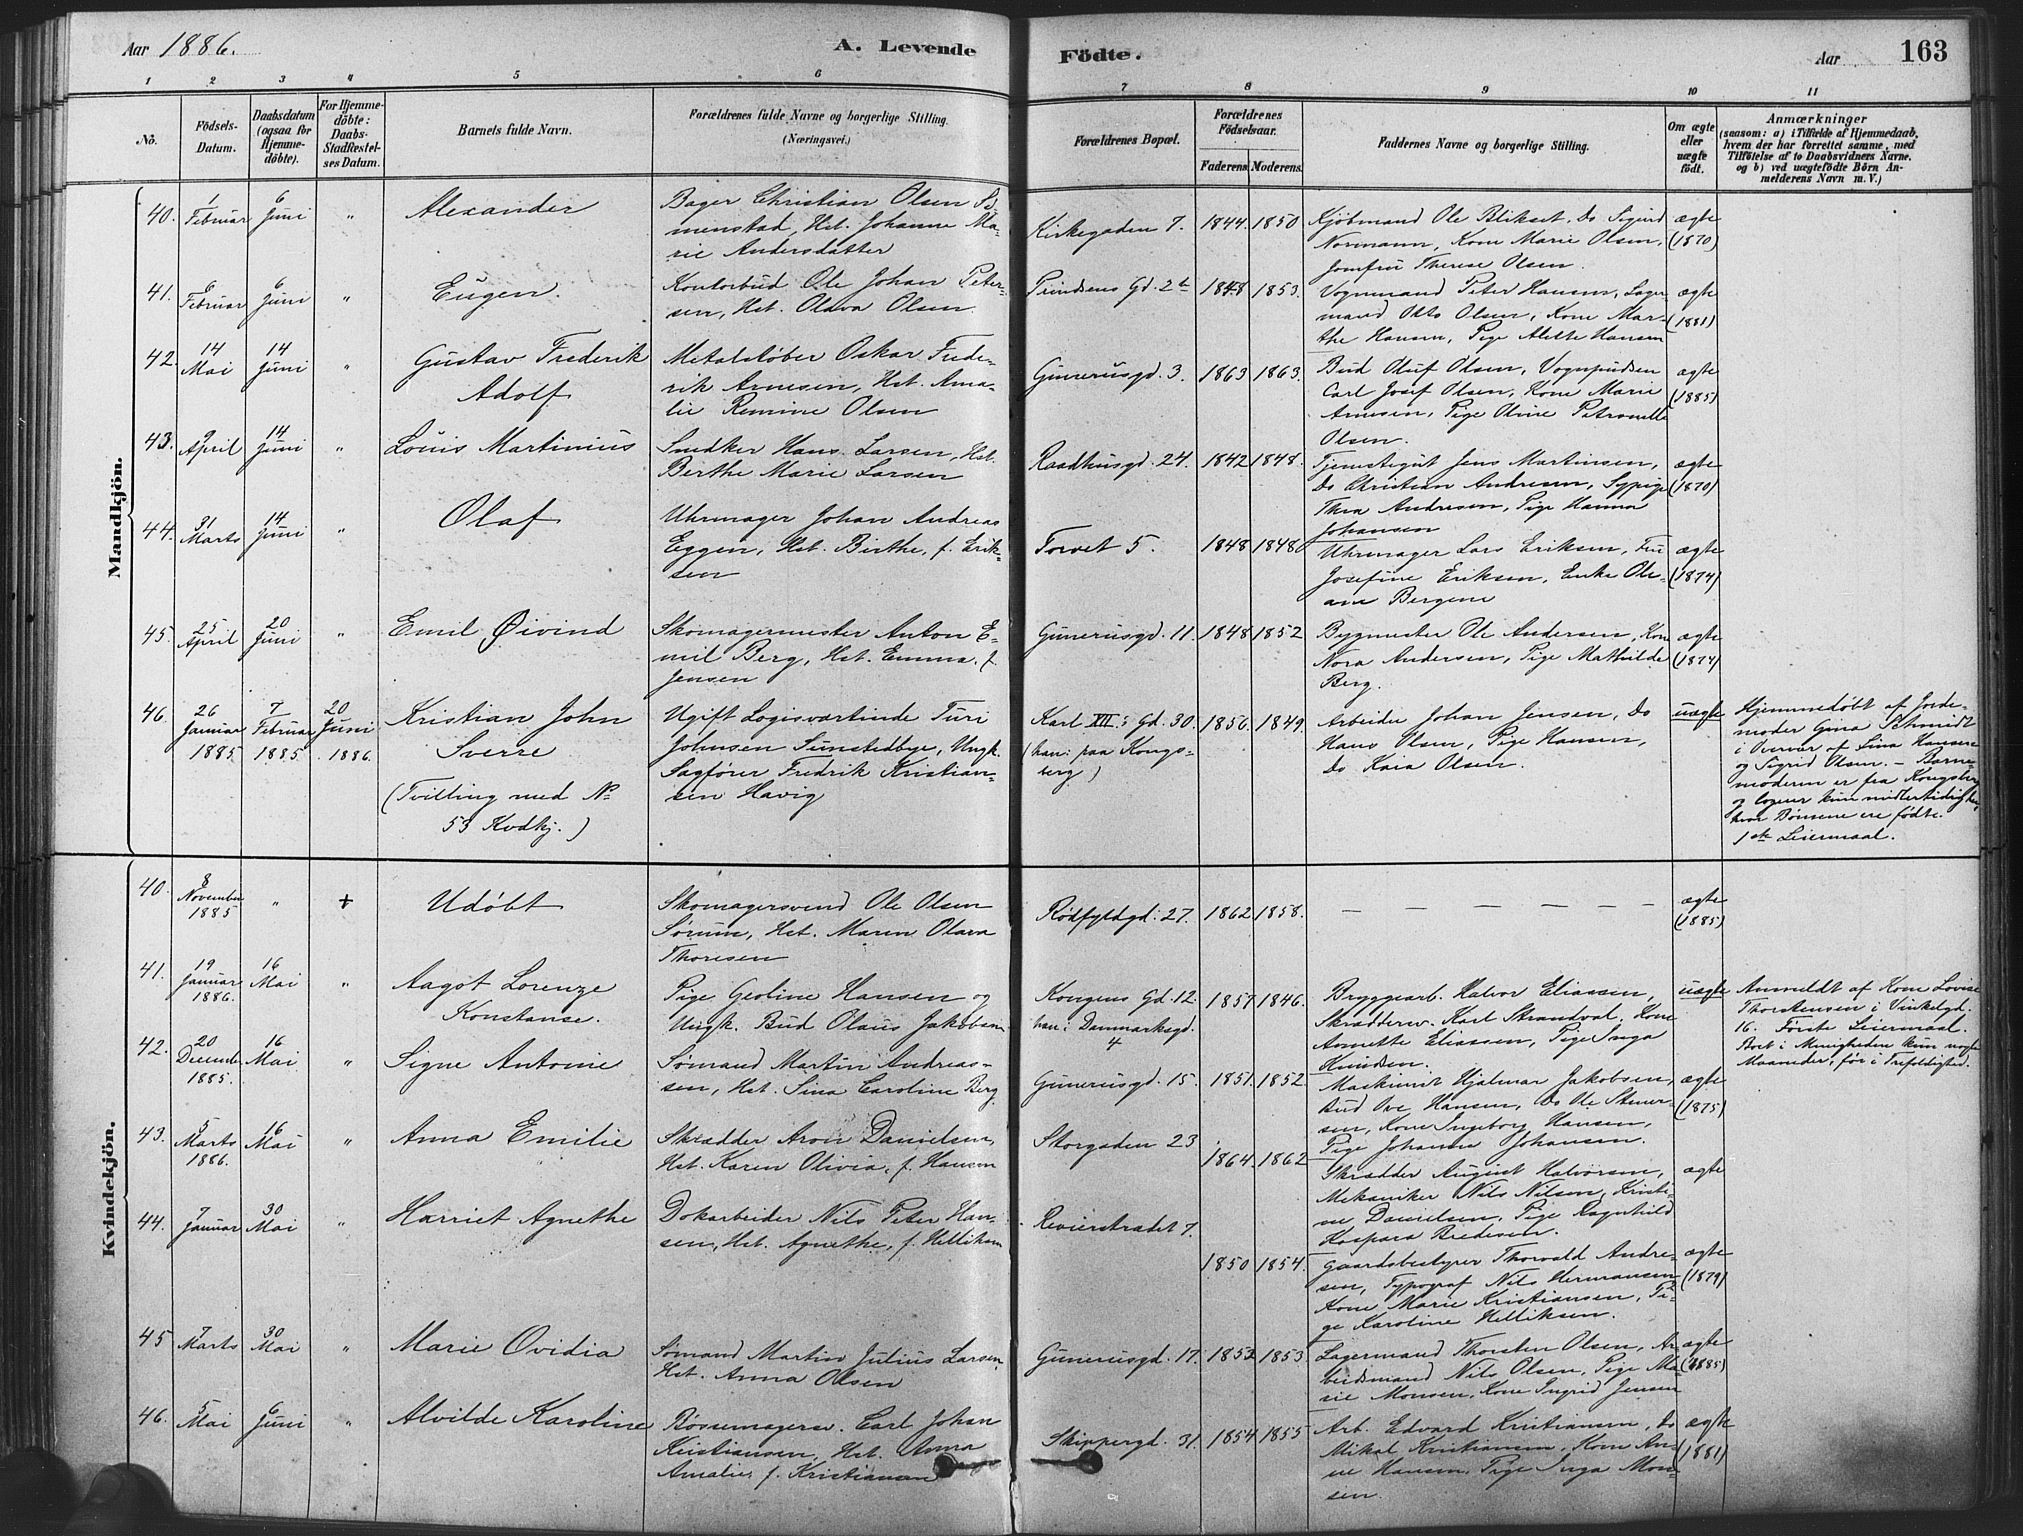 Aar 1886.
A. Levende Födte.
Aar 163
1 2 3 4 5 6 7 8 9 10 11
No.
Födsels-Datum.
Daabsdatum (ogsaa for Hjemmedöbte).
For Hjemmedöbte: Daabs-Stadfæstelses Datum.
Barnets fulde Navn.
Forældrenes fulde Navne og borgerlige Stilling.
(Næringsvei.)
Forældrenes Bopæl.
Forældrenes Födselsaar.
Faderens. Moderens.
Faddernes Navne og borgerlige Stilling.
Om ægte eller uægte födt.
Anmærkninger
(saasom: a) i Tilfælde af Hjemmedaab,
hvem der har forrettet samme, med
Tilföielse af to Daabsvidners Navne,
og b) ved uægtefödte Börn Anmelderens Navn m. V.)
Mandkjön.
40. 1 Februar 6 Juni " Alexander
Bager Christian Olsen
menstad, Hst. Johanne Ma-
rie Andersdatter
Kirkegaden 7. 1844. 1850
Kjøbmand Ole Blikset, Do Sigurd
Normann, Kone Marie Olsen,
Jomfru Therese Olsen.
ægte (1870)
41. 6 Februar 6 Juni " Eugen.
Kontorbud Ole Johan Peter-
sen, Hst. Olava Olsen.
Prindsens Gd. 2b 1848 1853.
Vognmand Peter Hansen, Lager-
mand Otto Olsen, Kone Mar-
the Hansen, Pige Alette Hansen
ægte (1881)
42. 14 Mai 14 Juni " Gustav Frederik
Adolf
Metalstøber Oskar Frede-
rik Arnesen, Hst. Ama-
lie Remine Olsen
Gunerusgd. 3. 1863 1863.
Bud Oluf Olsen, Vognpudser
Carl Josef Olsen, Kone Marie
Arnesen, Pige Olvine Petronelle
Olsen.
ægte (1885)
43. 9 April 14 Juni " Louis Martinius
Snedker Hans Larsen, Hst.
Berthe Marie Larsen
Raadhusgd. 24. 1842 1848.
Tjenestegut Jens Martinsen,
Do Christian Andresen, Sypige
Thea Andresen, Pige Hanna
Johansen
ægte (1870)
44. 31 Marts 14 Juni " Olaf
Uhrmager Johan Andreas
Eggen, Hst. Birthe, f. Erik-
sen
Torvet 5. 1848 1848
Uhrmager Lars Eriksen, Fru
Josefine Eriksen, Enke Ole-
ane Bergene
ægte (1874)
45. 25 April 20 Juni " Emil Øivind
Skomagermester Anton E-
mil Berg, Hst. Emma, f.
Jensen
Gunerusgd. 11. 1848 1852
Bygmester Ole Andersen, Kone
Nora Andersen, Pige Mathilde
Berg.
ægte (1874)
46. 26 Januar 1885 7 Februar 1885 20 Juni 1886. Kristian John
Sverre
(Tvilling med No
53 Kvdkj.)
Ugift Logisvertinde Turi
Johnsen Sunstedbye, Ungk.
Sagfører Fredrik Kristian-
sen Havig
Karl XII.s Gd. 30.
(han: paa Kongs-
berg)
1856. 1849.
Arbeider Johan Jensen, Do
Hans Olsen, Pige Hansen,
Do Kaia Olsen.
uægte
Hjemmedøbt af Jorde-
moder Gina Schmidt
i Overvær af Lina Hansen
og Sigrid Olsen. – Barne-
moderen er fra Kongsberg
og logerer kun midlertidig her,
hvor Børnene ere fødte.
1ste Leiermaal.
Kvindekjön.
40. 8 November 1885 " + Udøbt
Skomagersvend Ole Olsen
Sørum, Hst. Maren Olava
Thoresen
Rødfyldgd. 27. 1862 1858.
— — — — — — —
ægte (1885)
41. 19 Januar 1886. 16 Mai " Aagot Lorenze
Konstanse.
Pige Geoline Hansen og
Ungk. Bud Olaus Jakobsen
Kongens Gd. 12.
han: Danmarksgd.
4
1857. 1846.
Bryggearb. Halvor Eliassen,
Skræddersv. Karl Strandval, Kone
Annette Eliassen, Pige Inga
Knudsen.
uægte
Anmeldt af Kone Lovise
Thorstensen i Vinkelgd.
16. Første Leiermaal.
Boet i Menigheden kun nogle
Maaneder, før i Trefoldighed.
42. 20 Decemb. 1885. 16 Mai " Signe Antonie
Sømand Martin Andreas-
sen, Hst. Lina Caroline Berg
Gunerusgd. 15. 1851. 1852.
Maskinist Hjalmar Jakobsen,
Bud Ove Hansen, Do Ole Stener-
sen, Kone Ingeborg Hansen,
Pige Johanne Johansen.
ægte (1875)
43. 5 Marts 1886. 16 Mai " Anna Emilie
Skrædder Aron Danielsen,
Hst. Karen Olivia, f. Hansen
Storgaden 23 1864. 1862
Skrædder August Halvorsen,
Mekaniker Nils Nilsen, Kristi-
ne Danielsen, Pige Ragnhild
Kaspara Bredesen.
ægte
44. 7 Januar 30 Mai " Harriet Agnethe
Dokarbeider Nils Peter Han-
sen, Hst. Agnethe, f. Helliksen
Revierstrædet 7. 1850 1854.
Gaardsbestyrer Thorvald Andre-
sen, Typograf Nils Hermansen,
Kone Marie Kristiansen, Pi-
ge Karoline Helliksen.
ægte (1879)
45 7 Marts 30 Mai " Marie Ovidia
Sømand Martin Julius Larsen,
Hst. Anna Olsen
Gunerusgd. 17. 1853 1853
Lagermand Thorsten Olsen, Ar-
beidsmand Nils Olsen, Pige Ma-
rie Monsen, Kone Ingrid Jensen
ægte (1885)
46. 5 Mai 6 Juni " Alvilde Karoline
Bøssemagersv. Carl Johan
Kristiansen, Hst. Anna
Amalie, f. Kristiansen
Skippergd. 31. 1854 1855
Arb. Edvard Kristiansen, Do
Mikal Kristiansen, Kone An-
ne Hansen, Pige Inga Mon-
sen.
ægte (1881)